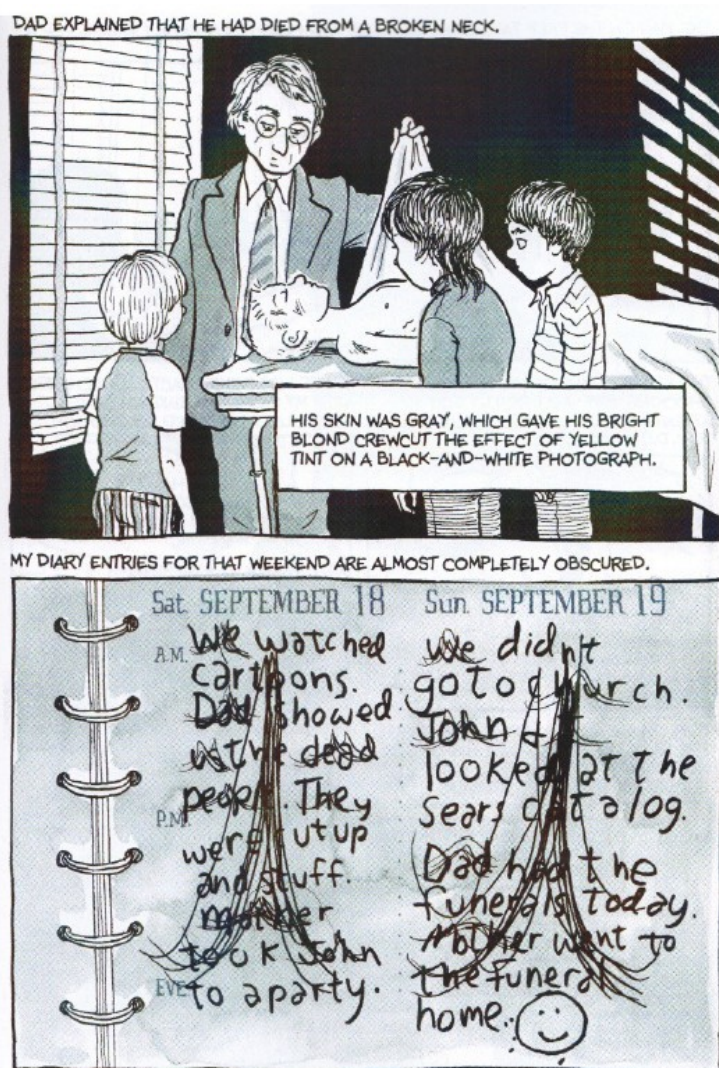 DAD EXPLAINED THAT HE HAD DIED FROM A BROKEN NECK.
HIS SKIN WAS GRAY, WHICH GAVE HIS BRIGHT
BLOND CREWCUT THE EFFECT OF YELLOW
TINT ON A BLACK-AND-WHITE PHOTOGRAPH.
MY DIARY ENTRIES FOR THAT WEEKEND ARE ALMOST COMPLETELY OBSCURED.
Sat. SEPTEMBER 18
A.M.
We watched
cartoons.
Dad showed
us the dead
people. They
P.M.
were cut up
and stuff.
Mother
took John
EVE
to a party.
Sun. SEPTEMBER 19
We didn't
go to church.
John
looked at the
sears catalog.
Dad had the
funerals today.
Mother went to
the funeral
home.